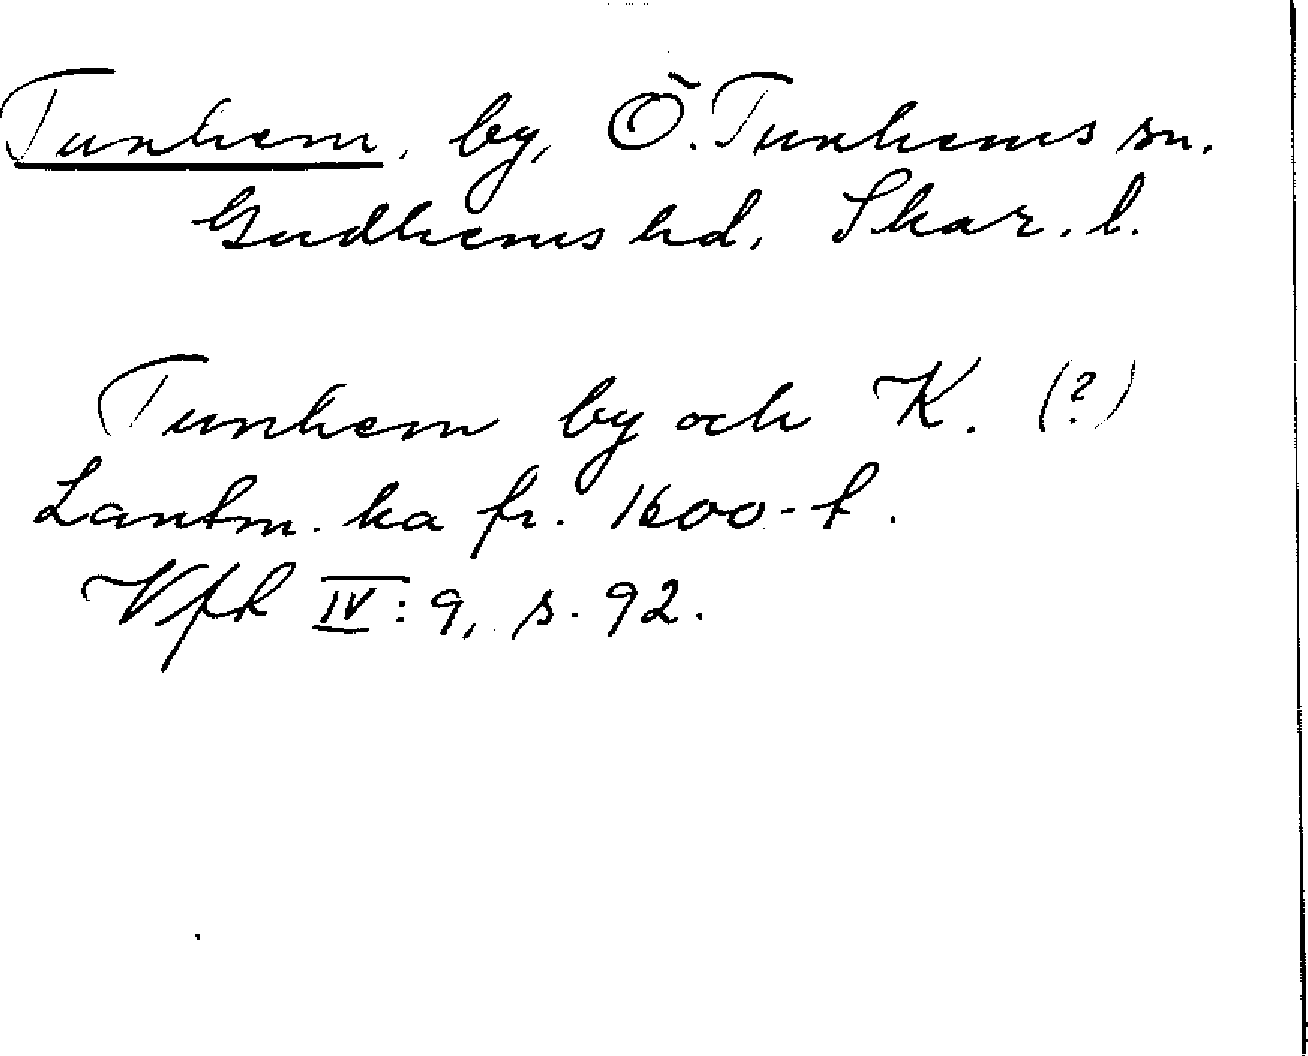 Tunhem, by, Ö. Tunhems sn.
Gudhems hd, Skar. l.
Tunhem by och K. (?)
Lantm. ka fr. 1600-t.
Vfk IV: 9, s. 92.